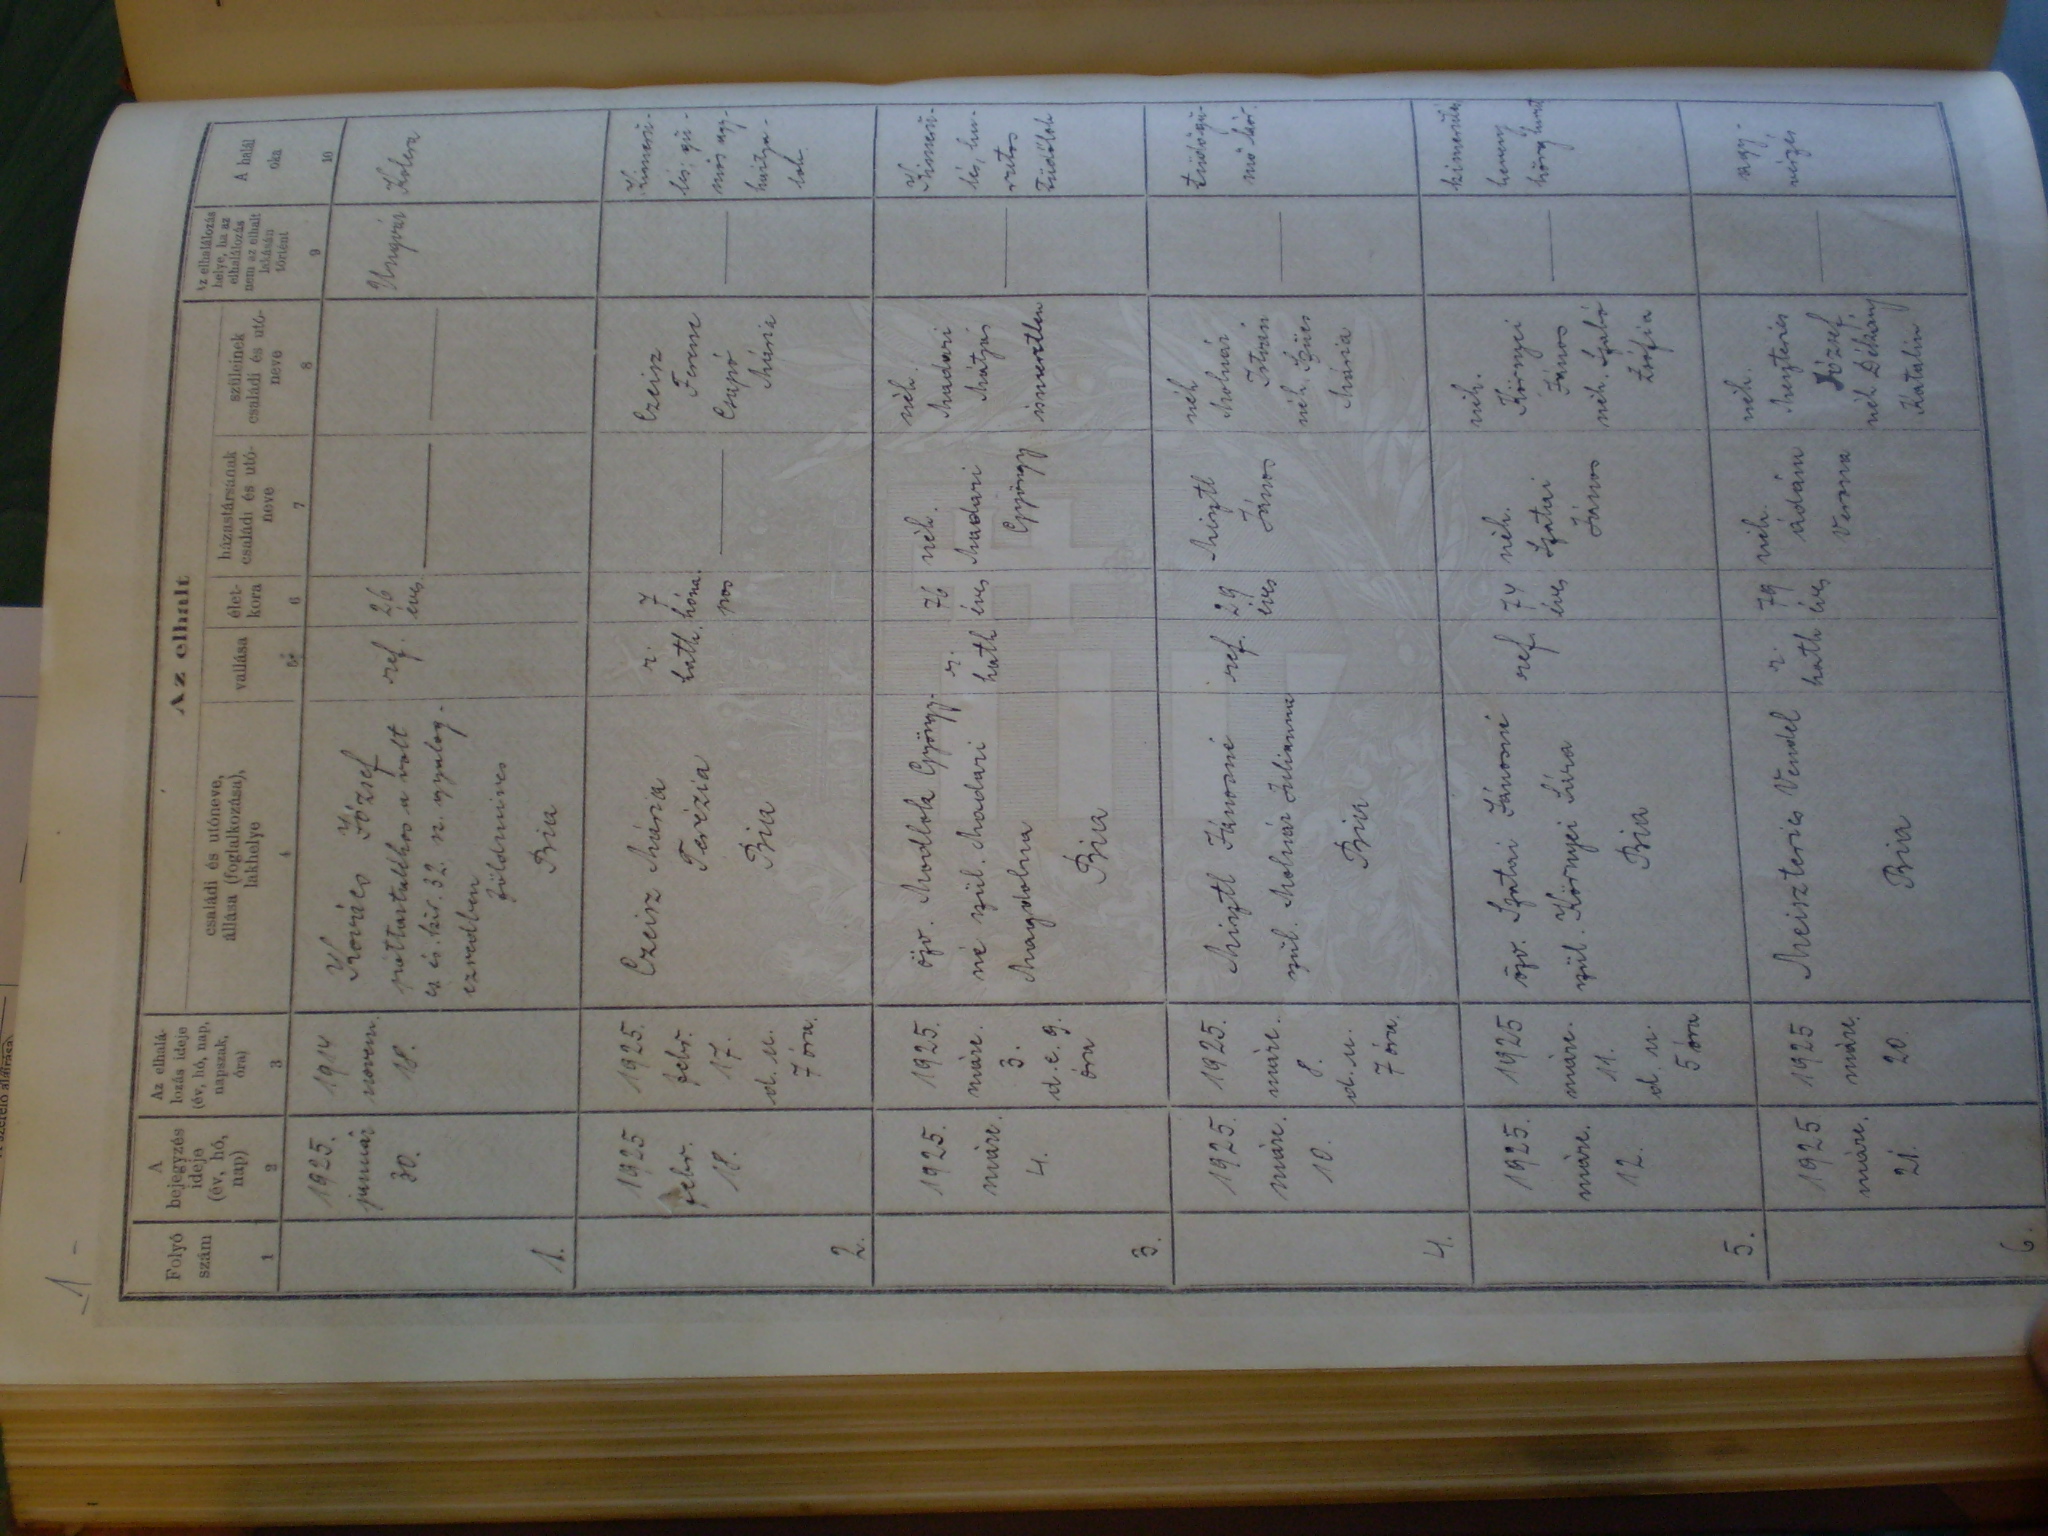 1
Az elhalt
Folyó
szám
A
bejegyzés
ideje
(év, hó,
nap)
Az elhalá-
lozás ideje
(év, hó, nap,
napszak,
óra)
családi és utóneve,
állása (foglalkozása),
lakhelye
vallása
élet-
kora
házastársának
családi és utó-
neve
szüleinek
családi és utó-
neve
Az elhalálozás
helye, ha az
elhalálozás
nem az elhalt
lakásán
történt
A halál
oka
1
2
3
4
5
6
7
8
9
10
1.
1925.
január
30.
1914
novem.
18.
Kovács József
póttartalékos a volt
cs és. kir. 32. sz. gyalog-
ezredben
földmíves
Bia
ref.
26
éves
Ungvár
Kolera
2.
1925
febr.
18.
1925.
febr.
17.
d. u.
7 óra.
Czeisz Mária
Terézia
Bia
r.
kath.
7
hóna.
pos
Czeisz
Ferenc
Csupó
Mária
Kimerü-
lés, gü-
mős agy-
hártya-
lob.
3.
1925.
márc.
4.
1925.
márc.
3.
d. e. 9.
óra
özv. Modlok György-
né szül. Madari
Magdolna
Bia
r.
kath
76
éves
néh.
Madari
György
néh.
Madari
Mátyás
ismeretlen
Kimerü-
lés, hu-
rutos
tüdőlob
4.
1925.
márc.
10.
1925.
márc.
8.
d. u.
7 óra.
Misztl Jánosné
szül. Molnár Julianna
Bia
ref.
29
éves
Misztl
János
néh
Molnár
István
néh. Szűcs
Mária
tüdőgü-
mő kór.
5.
1925.
márc.
12.
1925
márc.
11.
d. u.
5 óra
özv. Szatai Jánosné
szül. Környei Sára
Bia
ref.
74
éves
néh.
Szatai
János
néh.
Környei
János
néh. Szabó
Zsófia
kimerülés
heveny
hörg hurut
6.
1925
márc.
21.
1925
márc.
20.
Meiszterics Vendel
Bia
r.
kath
79
éves
néh.
Ádám
Verona
néh.
Meszterics
József
néh Dékány
Katalin
agy-
vérzés